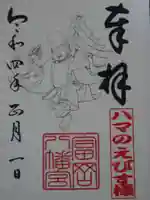 奉拝
ハマのえびす様
富岡
八幡宮
令和四年正月一日